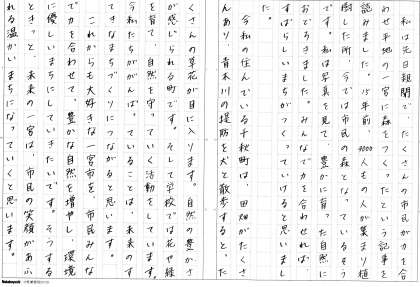 私は元旦新聞で、たくさんの市民が力を合
わせ平地の一宮に森をつくったという記事を
読みました。15年前、4000人もの人が集まり植
樹した所、今では市民の森となっているそう
です。私は写真を見て、豊かに育った自然に
おどろきました。みんなで力を合わせれば、
すばらしいまちがつくっていけると思いまし
た。
今私の住んでいる千秋町は、田畑がたくさ
んあり、青木川の堤防を犬と散歩すると、た
くさんの草花が目に入ります。自然の豊かさ
が感じられる町です。そして学校では花や緑
を育て、自然を守っていく活動をしています。
今私たちががんばっていることは、未来のす
てきなまちづくりにつながると思います。
これからも大好きな一宮市を、市民みんな
で力を合わせて、豊かな自然を増やし、環境
に優しいまちにしていきたいです。そうする
ときっと、未来の一宮は、市民の笑顔があふ
れる温かいまちになっていくと思います。